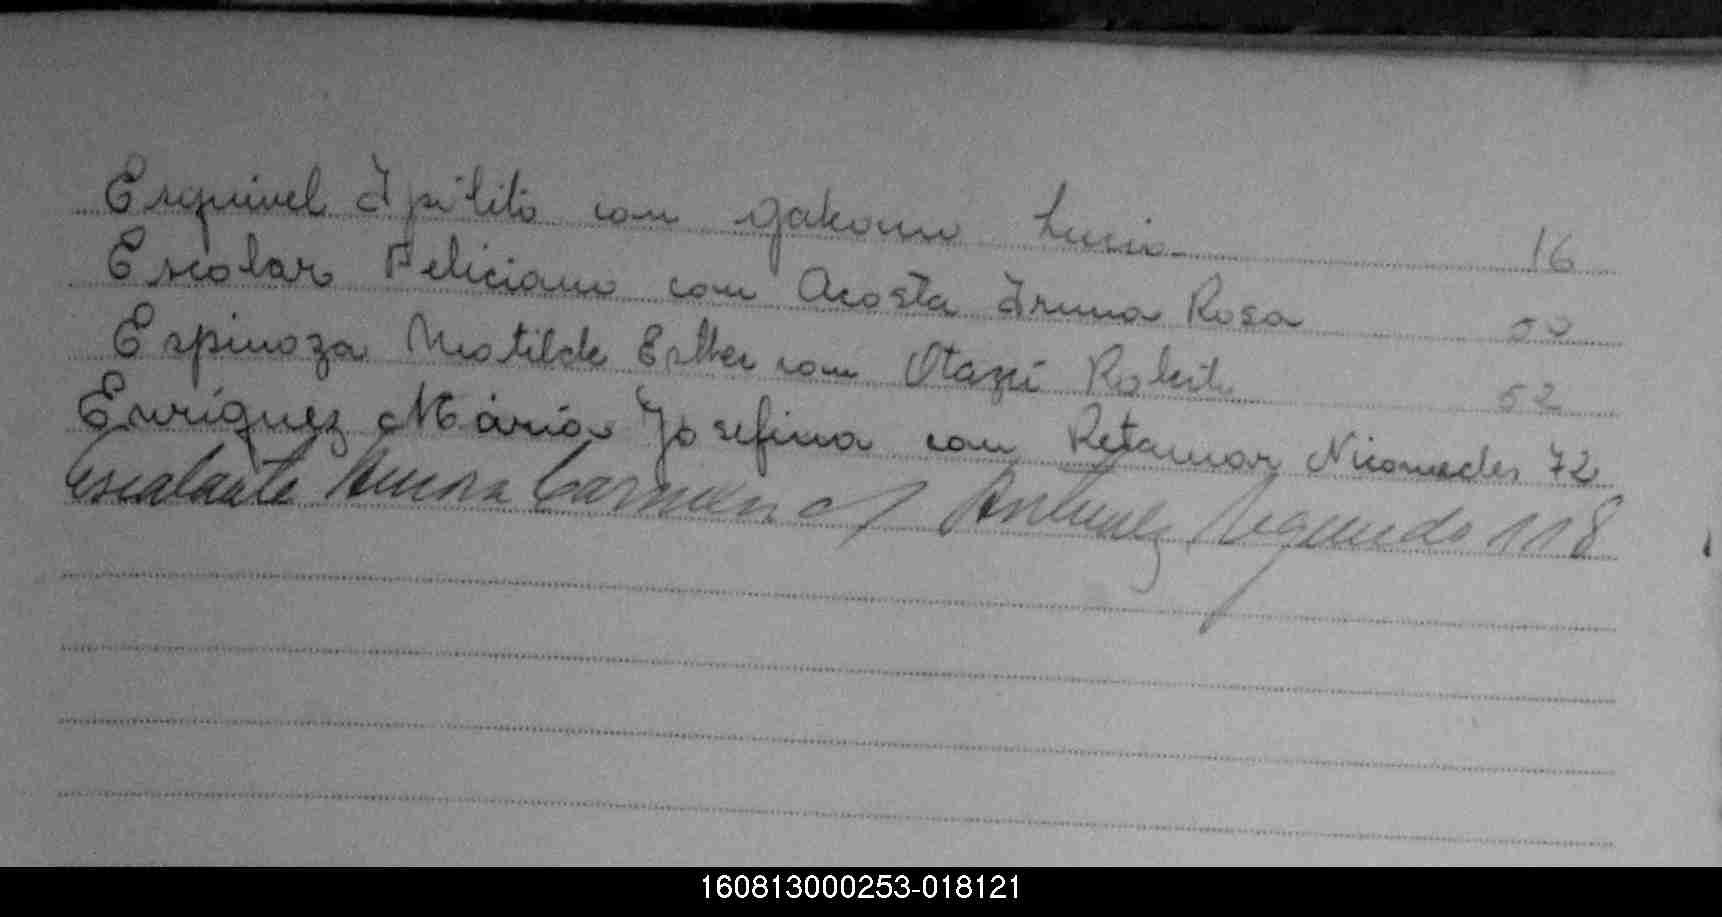 Esquivel Ipólito con Galeano Lucia 16
Escolar Feliciano con Acosta Irma Rosa 50
Espinoza Matilde Esther con Otazú Roberto 52
Enríquez María Josefina con Retamar Nicomedes 72
Escalante Carmen c/ Segundo 118
160813000253-018121